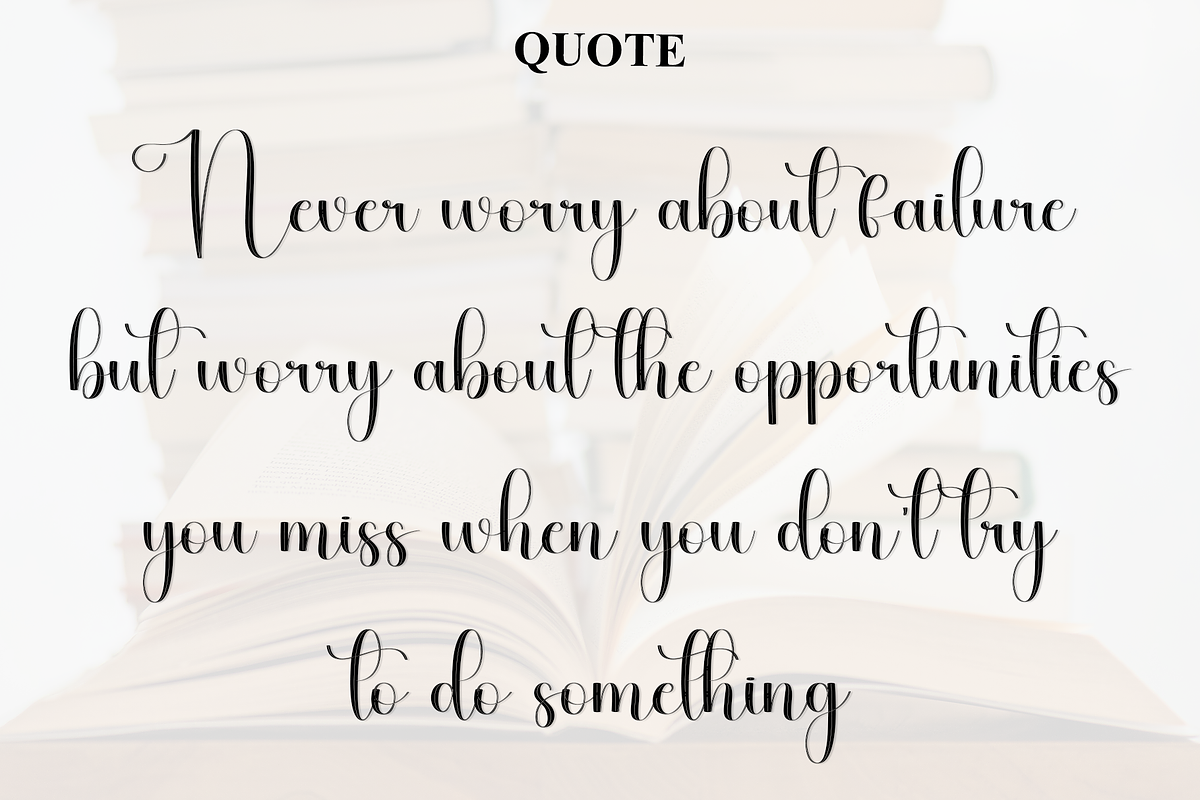 QUOTE
Never worry about failure
but worry about the opportunities
you miss when you don't try
to do something